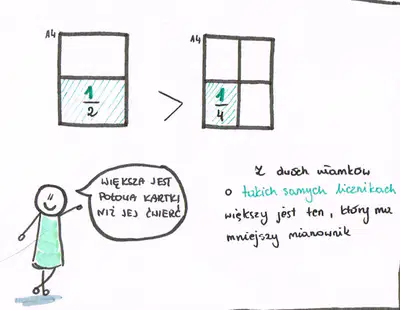 A4
1
2
>
A4
1
4
WIĘKSZA JEST
POŁOWA KARTKI
NIŻ JEJ ĆWIERĆ
Z dwóch ułamków
o takich samych licznikach
większy jest ten, który ma
mniejszy mianownik